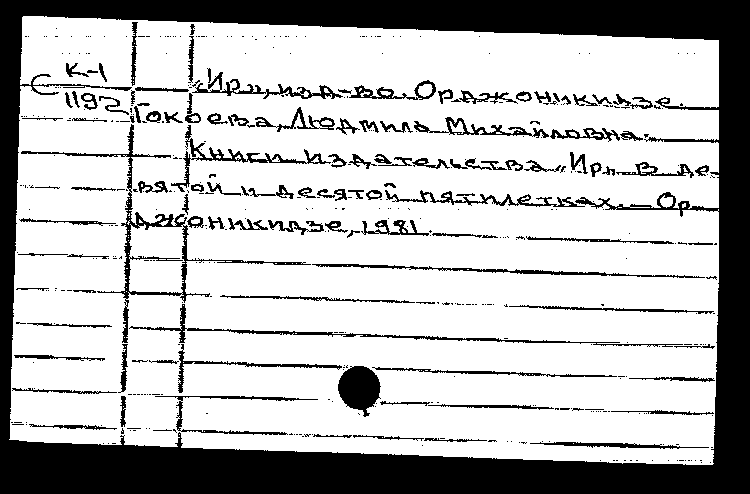 С К-1
1192
«Ир», изд-во. Орджоникидзе.
Гокоева, Людмила Михайловна.
Книги издательства „Ир„ в де-
вятой и десятой пятилетках. — Ор-
джоникидзе, 1981.